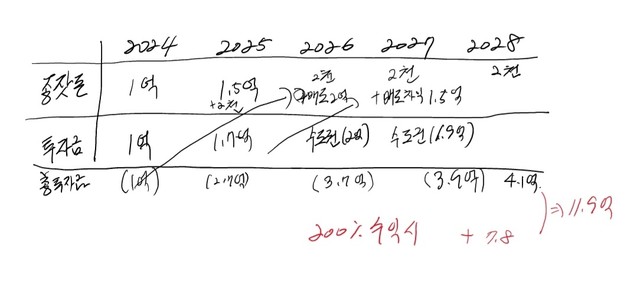 2024 2025 2026 2027 2028
종잣돈 1억 1.5억 2천 2천 2천
+2천 매도 2억 +매도차익 1.5억
투자금 1억 1.7억 수도권(2억) 수도권(1.9억)
총투자금 (1억) (2.7억) (3.7억) (3.9억) 4.1억
200% 수익시 + 7.8 ⇒ 11.9억